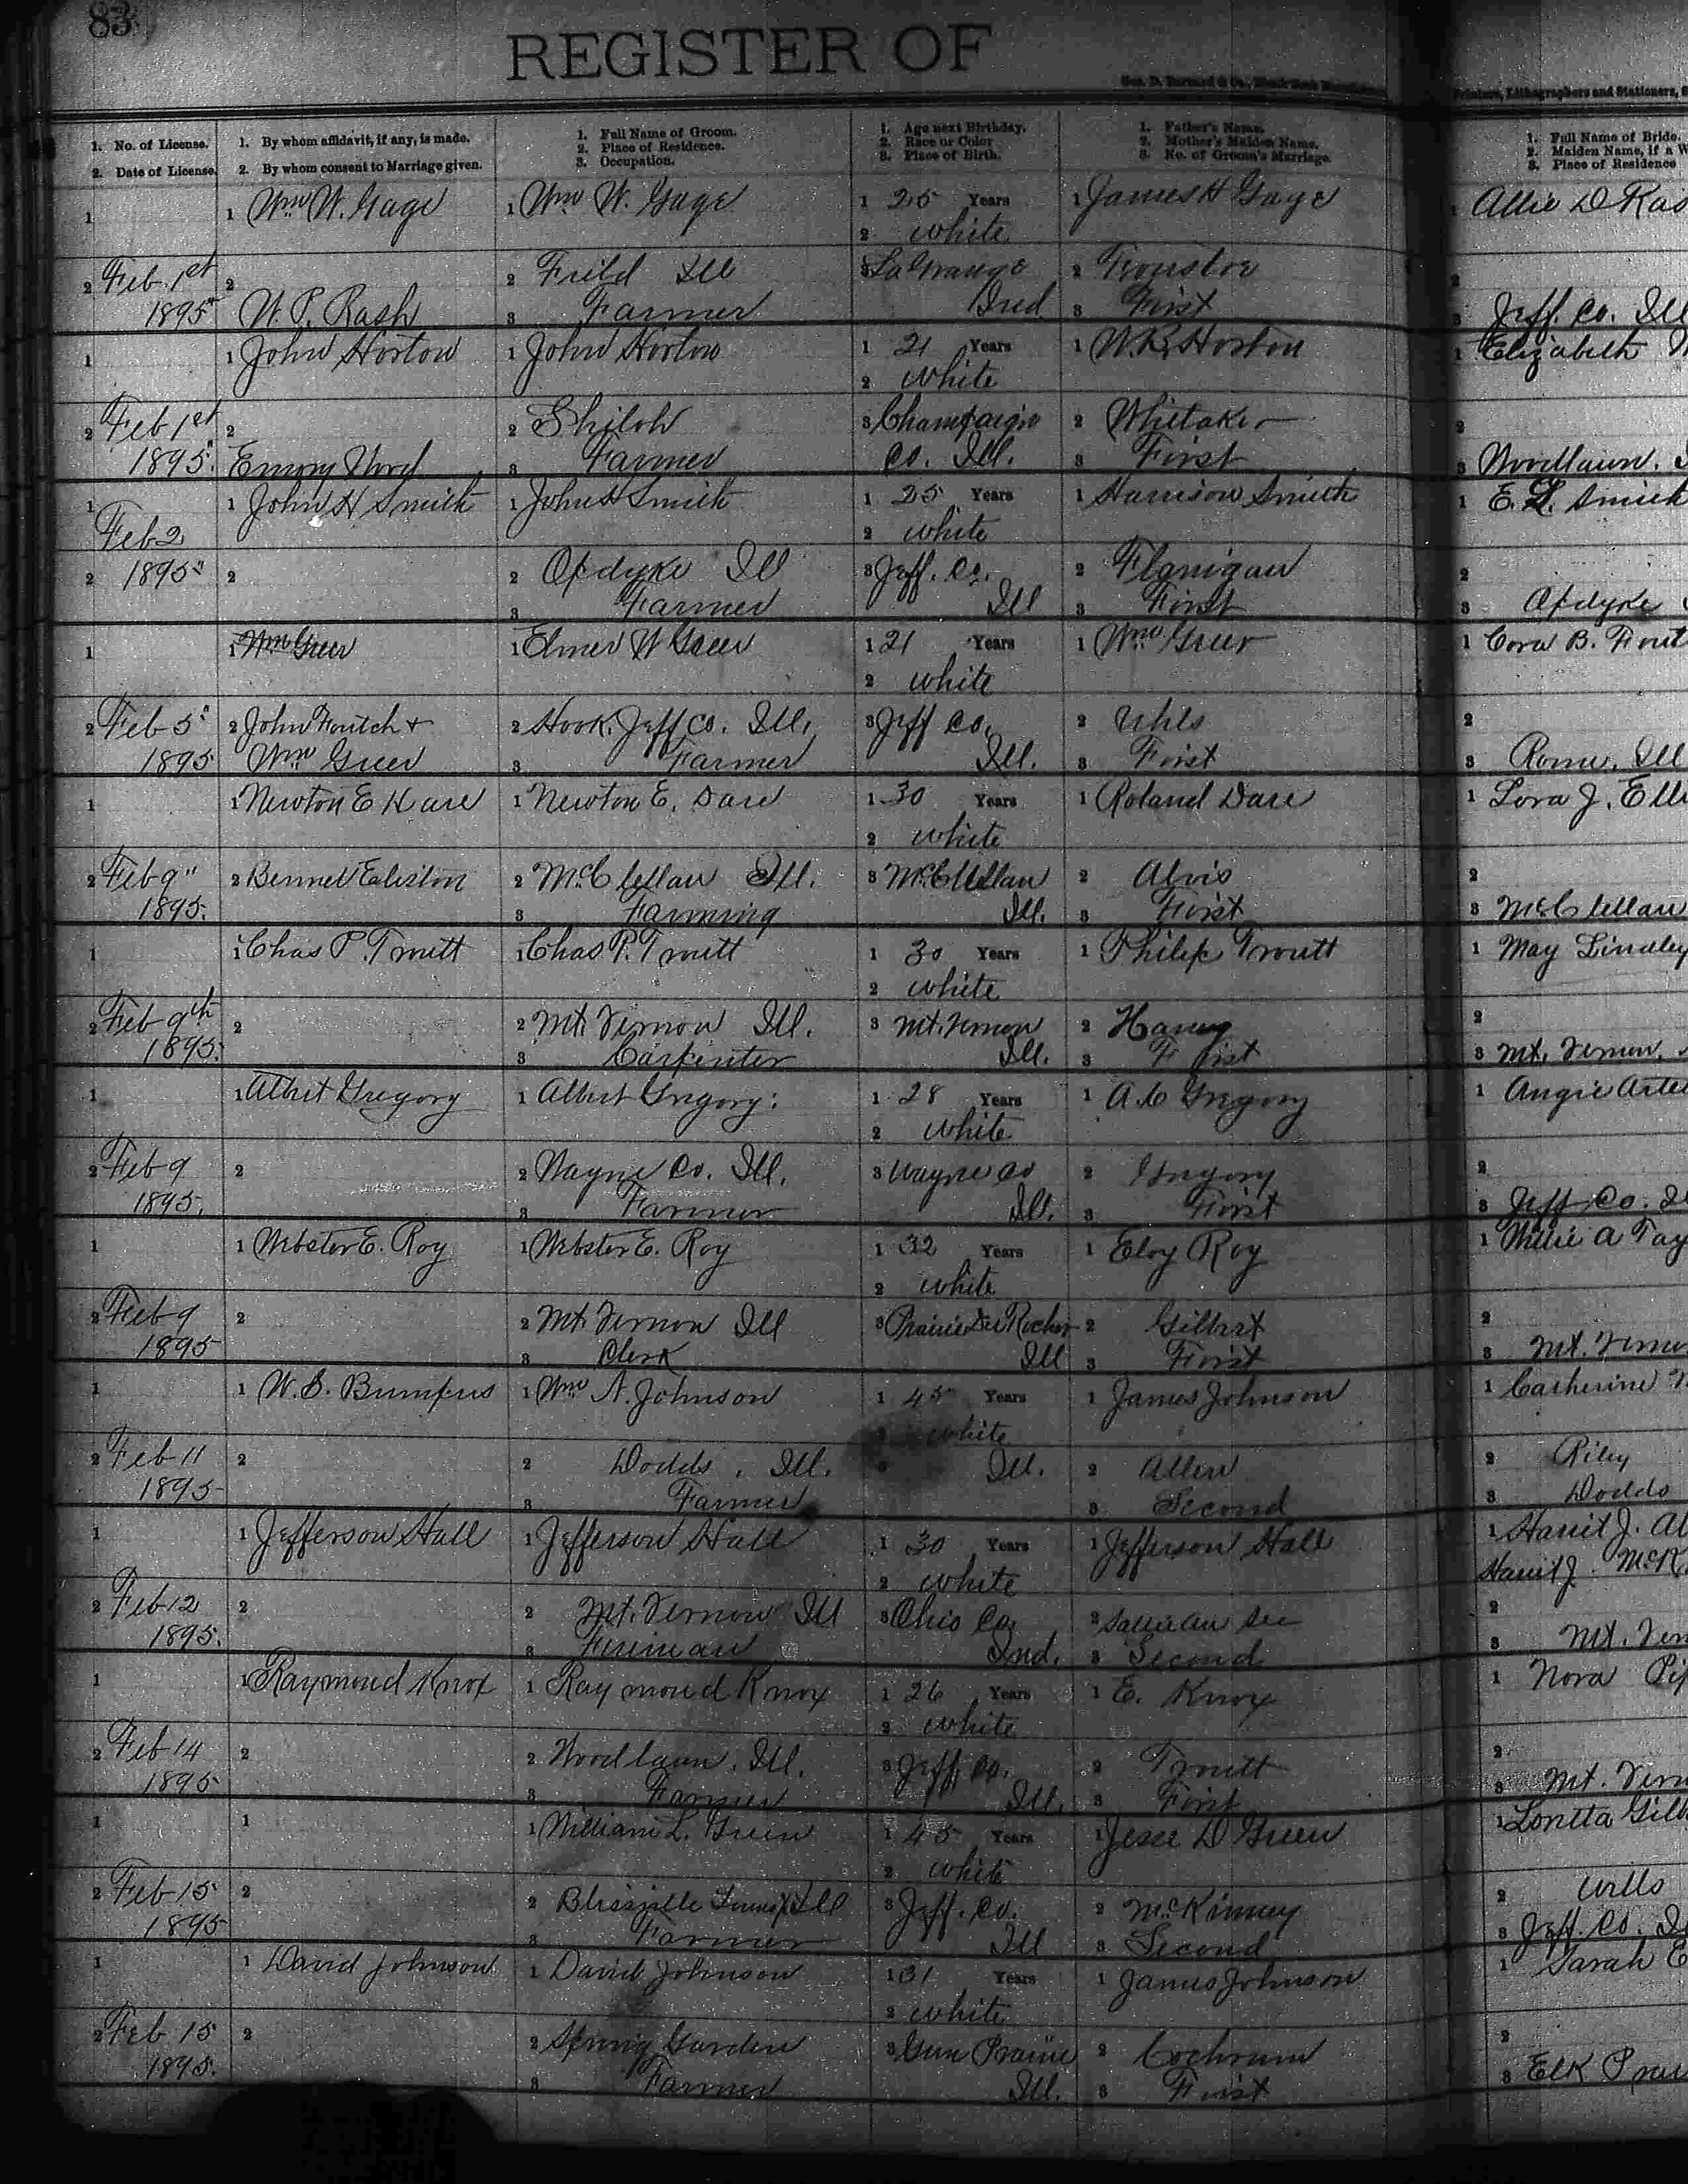 83
REGISTER OF
Geo. D. Barnard & Co.,
Printers, Lithographers and Stationers,
1. No. of License.
2. Date of License.
1. By whom affidavit, if any, is made.
2. By whom consent to Marriage given.
1. Full Name of Groom.
2. Place of Residence.
3. Occupation.
1. Age next Birthday.
2. Race or Color
3. Place of Birth.
1. Father's Name.
2. Mother's Maiden Name.
3. No. of Groom's Marriage.
1. Full Name of Bride.
2. Maiden Name, if a W
3. Place of Residence
1 1 Wm W. Gage 1 Wm W. Gage 1 25 Years 1 James H Gage 1 Allie D Ras
2 white
2 Feb. 1st 2 2 Field Ill 3 LaGrange 2 2
1895 W. P. Rash 3 Farmer Ind 3 First 3 Jeff. Co. Ill
1 1 John Horton 1 John Horton 1 21 Years 1 W. R. Horton 1 Elizabeth
2 white
2 Feb 1st 2 2 Shiloh 3 Champaign 2 Whitaker 2
1895. Emory 3 Farmer Co. Ill. 3 First 3 Woodlawn.
1 1 John H Smith 1 John H Smith 1 25 Years 1 Harrison Smith 1 E. L. Smith
Feb 2 2 white
2 1895 2 2 Opdyke Ill 3 Jeff. Co. 2 Flanigan 2
3 Farmer Ill 3 First 3 Opdyke
1 1 Wm Greer 1 Elmer W Greer 1 21 Years 1 Wm Greer 1 Cora B. Fout
2 white
2 Feb 5" 2 John Foutch + 2 Hook. Jeff Co. Ill. 3 Jeff Co. 2 Uhls 2
1895 Wm Greer 3 Farmer Ill. 3 First 3 Rome, Ill
1 1 Newton E Dare 1 Newton E. Dare 1 30 Years 1 Roland Dare 1 Lora J. Elli
2 white
2 Feb 9" 2 Bennet 2 McClellan Ill. 3 McClellan 2 Alvis 2
1895. 3 Farming Ill. 3 First 3 McClellan
1 1 Chas P. Truitt 1 Chas. P. Truitt 1 30 Years 1 Philip Truitt 1 May Lindley
2 white
2 Feb 9th 2 2 Mt. Vernon Ill. 3 Mt. Vernon 2 Haney 2
1895. 3 Carpenter Ill. 3 First 3 Mt. Vernon.
1 1 Albert Gregory 1 Albert Gregory. 1 28 Years 1 A. C Gregory 1 Angie Arte
2 white
2 Feb 9 2 2 Wayne Co. Ill. 3 Wayne Co 2 Gregory 2
1895. 3 Farmer Ill. 3 First 3 Jeff Co. Il
1 1 Webster E. Roy 1 Webster E. Roy 1 32 Years 1 Eloy Roy 1 Millie A Tay
2 white
2 Feb 9 2 2 Mt. Vernon Ill 3 Prairie Du Rocher 2 Gilbert 2
1895 3 Clerk Ill 3 First 3 Mt. Verno
1 1 W. C. Bumpus 1 Wm N. Johnson 1 45 Years 1 James Johnson 1 Catherine
white
2 Feb 11 2 2 Dodds, Ill. Ill. 2 Allen 2 Riley
1895 3 Farmer 3 Second 3 Dodds
1 1 Jefferson Hall 1 Jefferson Hall 1 30 Years 1 Jefferson Hall 1 Harriet J. Al
2 white Harriet J. McK
2 Feb 12 2 2 Mt. Vernon Ill 3 Ohio Co. 2 Sallie Ann 2
1895. 3 Fireman Ind. 3 Second 3 Mt. Ver
1 1 Raymond Knox 1 Raymond Knox 1 26 Years 1 E. Knox 1 Nora Pi
2 white
2 Feb 14 2 2 Woodlawn. Ill. 3 Jeff. Co. 2 Truitt 2
1895 3 Farmer Ill. 3 First 3 Mt. Vern
1 1 1 William L. Green 1 45 Years 1 Jesse D Green 1 Loretta Gilb
2 white
2 Feb 15 2 2 Blissville Ill 3 Jeff. Co. 2 McKinney 2 Wells
1895 3 Farmer Ill 3 Second 3 Jeff. Co. Il
1 1 David Johnson 1 David Johnson 1 31 Years 1 James Johnson 1 Sarah E
2 white
2 Feb 15 2 2 Spring Garden 3 Gun Prairie 2 Cochrum 2
1895. 3 Farmer Ill. 3 First 3 Elk Prai